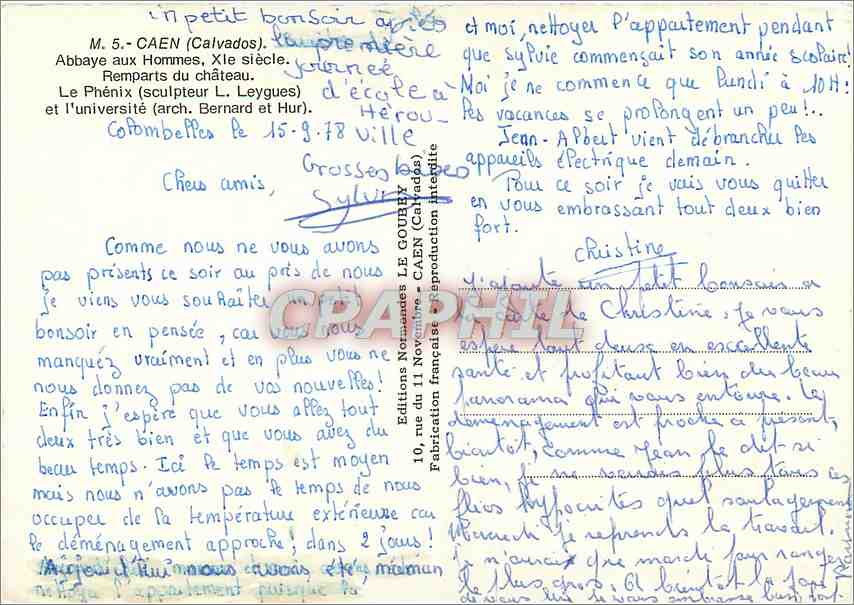 un petit bonsoir après
la première
journée
d'école à
Hérou-
ville
Grosses bises
Sylvie
M. 5.- CAEN (Calvados).
Abbaye aux Hommes, XIe siècle.
Remparts du château.
Le Phénix (sculpteur L. Leygues)
et l'université (arch. Bernard et Hur).
Colombelles le 15-9-78
Chers amis,
Comme nous ne vous avons
pas présents ce soir au près de nous
je viens vous souhaiter un petit
bonsoir en pensée, car vous nous
manquéz vraiment et en plus vous ne
nous donnez pas de vos nouvelles!
Enfin j'espère que vous allez tout
deux très bien et que vous avez du
beau temps. Ici le temps est moyen
mais nous n'avons pas le temps de nous
occuper de la température extérieure car
le déménagement approche! dans 2 jours!
Aujourd'hui nous avons été, maman
et moi, nettoyer l'appartement pendant
que sylvie commençait son année scolaire!
Moi je ne commence que lundi à 10H!
les vacances se prolongent un peu!..
Jean-Albert vient débrancher les
appareils électrique demain.
Pour ce soir je vais vous quitter
en vous embrassant tout deux bien
fort.
Christine
J'ajoute un petit bonsoir a
la carte de Christine, je vous
espère tout deux en excellente
santé et profitant bien du beau
panorama qui vous entoure. Le
déménagement est proche a présent,
bientôt, comme Jean le dit si
bien, je ne verrais plus tous ces
hypocrites quel soulagement
Mercredi je reprends la travail.
je n'aurais que mardi pour ranger
le plus gros. Et bientôt la joie
de vous lire je vous embrasse bien fort
Editions Normandes LE GOUBEY
10, rue du 11 Novembre - CAEN (Calvados)
Fabrication française - Reproduction interdite
CPAPHIL